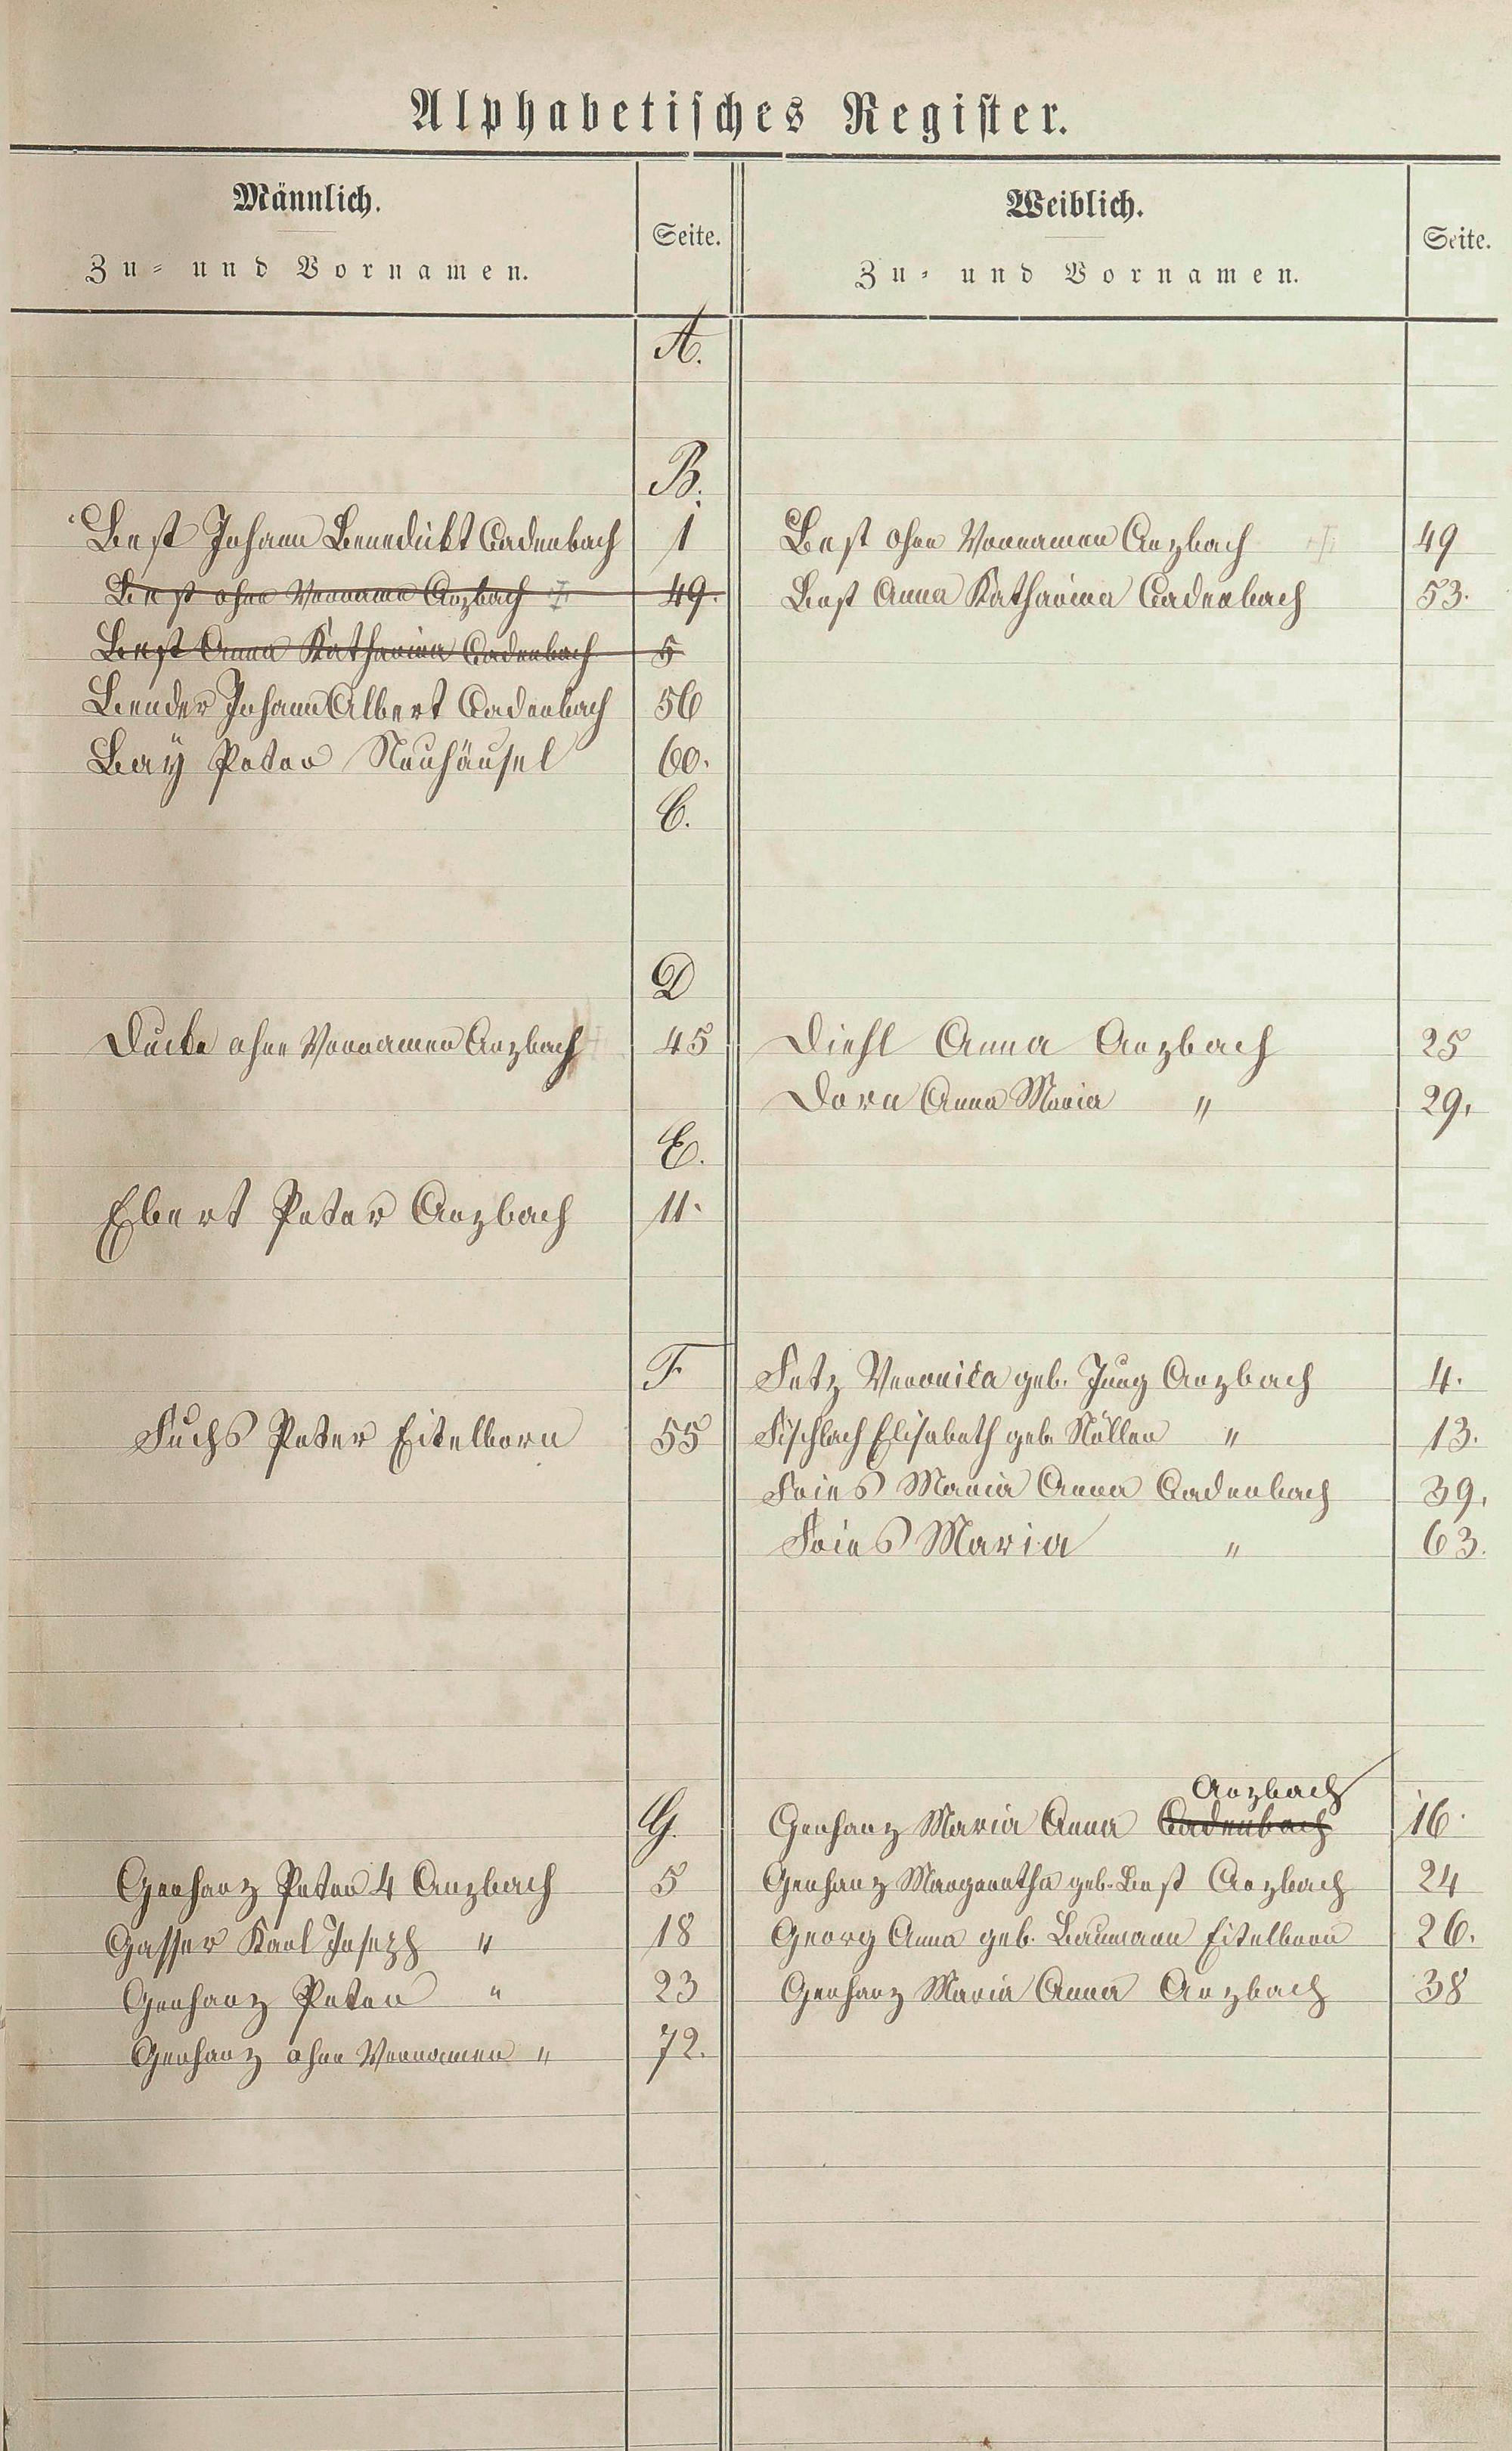 Alphabetisches Register.
Männlich.
Zu- und Vornamen.
Seite.
Weiblich.
Zu- und Vornamen.
Seite.
A.
B.
Best Johann Benedickt Cadenbach 1 Best ohne Vornamen Arzbach 49
Best ohne Vorname Arzbach 49. Best Anna Katharina Cadenbach 53.
Best Anna Katharina Cadenbach 5
Bender Johann Albert Cadenbach 56
Bay Peter Neuhäusel 60.
C.
D
Ducke ohne Vornamen Arzbach 45 Diehl Anna Arzbach 25
Dorn Anna Maria " 29.
E.
Ebert Peter Arzbach 11.
F Fetz Veronica geb. Jung Arzbach 4.
Fuchs Peter Eitelborn 55 Fischbach Elisabeth geb. Nöllen " 13.
Fries Maria Anna Cadenbach 39.
Fries Maria " 63.
Arzbach
G. Gerharz Maria Anna Cadenbach 16.
Gerharz Peter 4 Arzbach 5 Gerharz Margaretha geb. Best Arzbach 24
Gasser Karl Joseph " 18 Georg Anna geb. Baumann Eitelborn 26.
Gerharz Peter " 23 Gerharz Maria Anna Arzbach 38
Gerharz ohne Vornamen " 72.